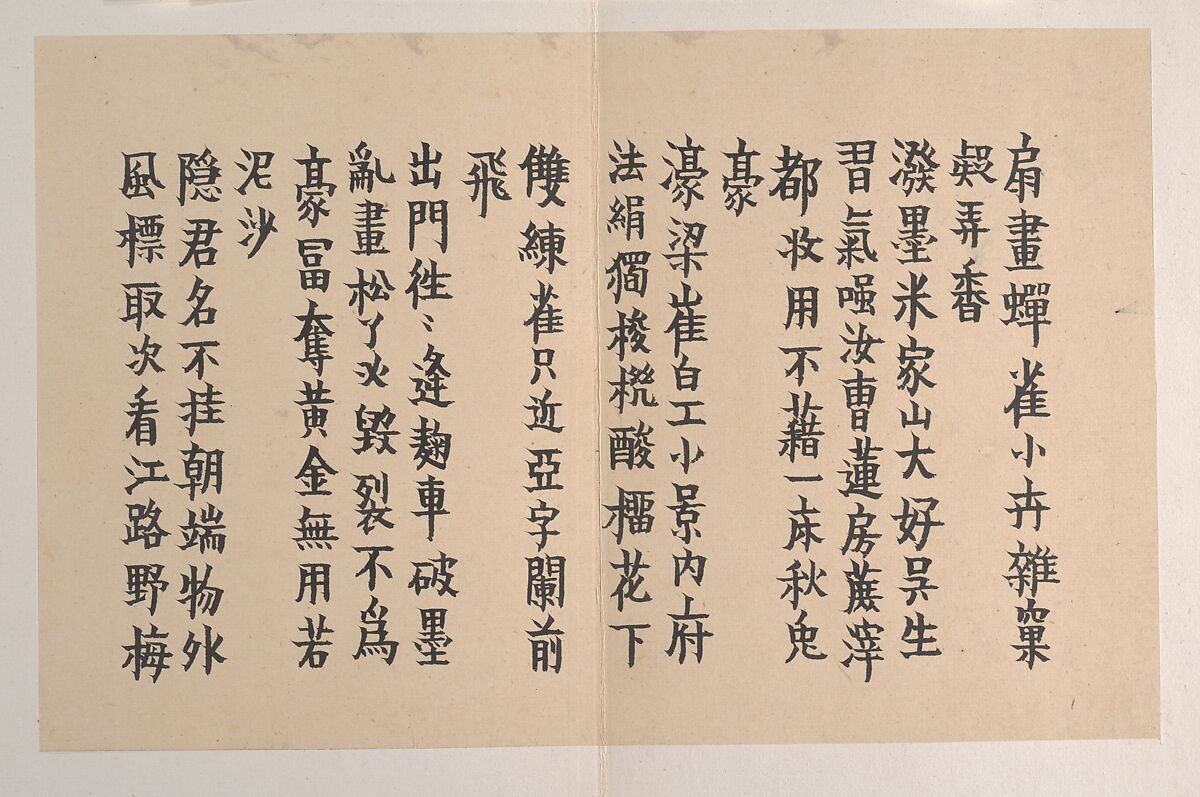 扇畫蟬雀小卉雜窠
弄香
潑墨米家山大好吳生
習氣嗤汝曹蓮房蔗滓
都收用不藉一床秋兔
豪
濠梁崔白工小景內府
法絹獨梭機酸榴花下
雙練雀只近亞字闌前
飛
出門往〻逢麴車破墨
亂畫松丫叉毀裂不爲
豪富奪黃金無用若
泥沙
隱君名不挂朝端物外
風標取次看江路野梅